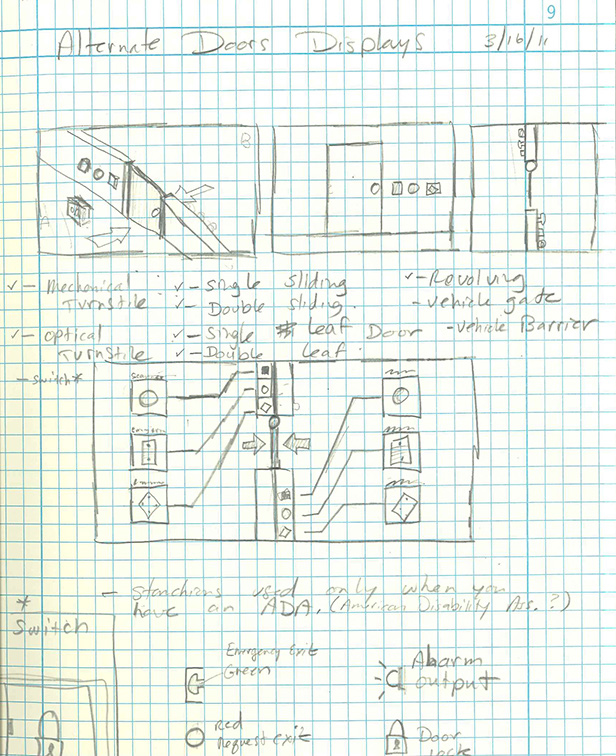 9
Alternate Doors Displays 3/16/11
B
A
✓ - Mechanical Turnstile
✓ - Single Sliding
✓ - Double Sliding
✓ - Revolving
- Vehicle gate
✓ - Optical Turnstile
✓ - Single Leaf Door
✓ - Double Leaf
- Vehicle Barrier
- Switch*
- Stanchions used only when you
have an ADA. (American Disability Ass.?)
*
Switch
Emergency Exit
Green
Alarm
output
Red
Request exit
Door
Lock